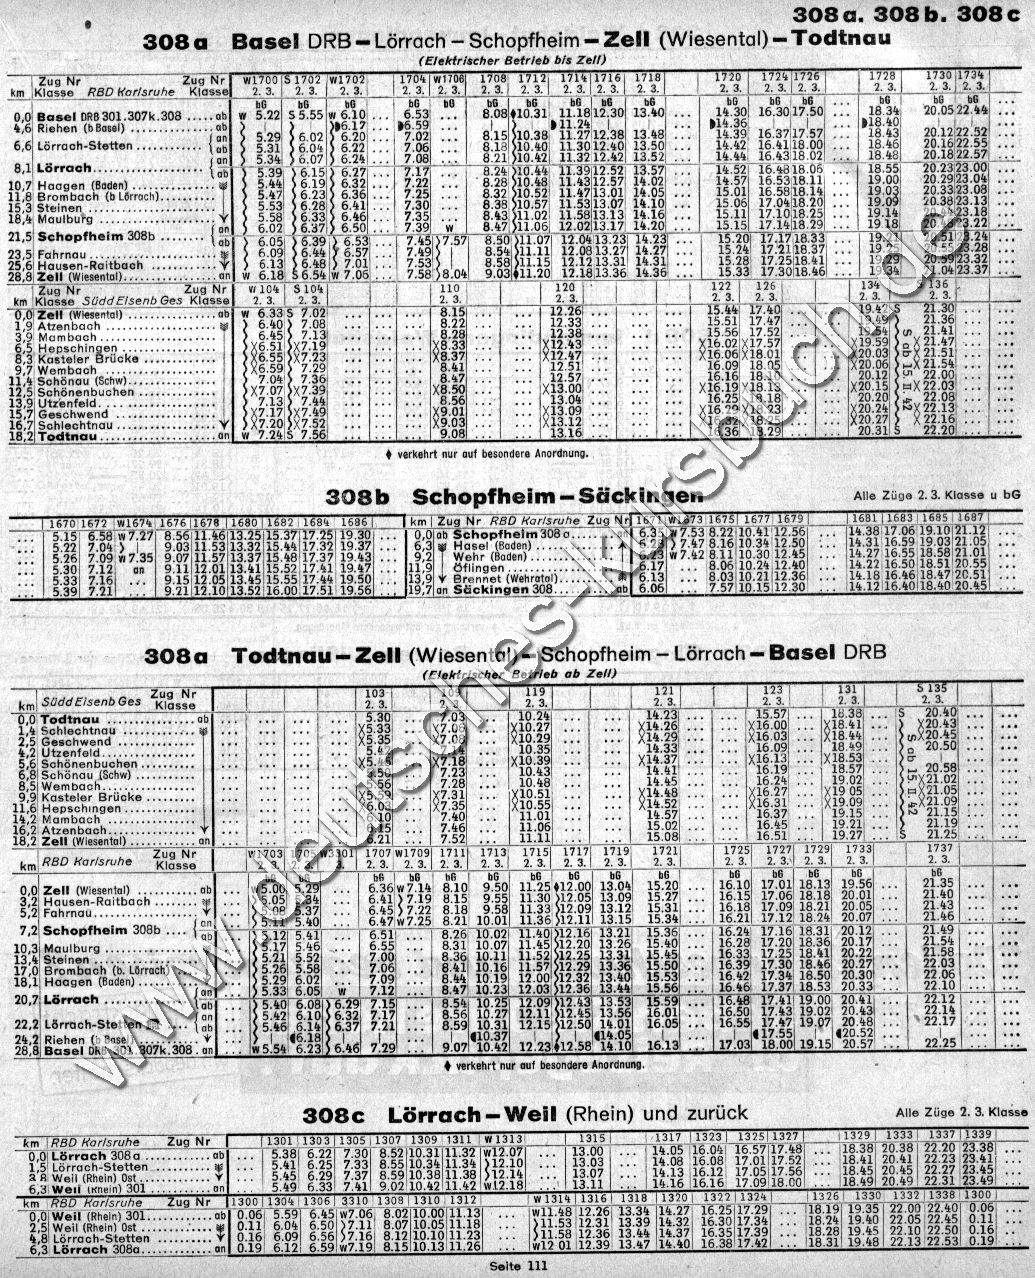 308a. 308b. 308c
308a Basel DRB – Lörrach – Schopfheim – Zell (Wiesental) – Todtnau
(Elektrischer Betrieb bis Zell)
Zug Nr Zug Nr W1700 S 1702 W1702 1704 W1706 1708 1712 1714 1716 1718 1720 1724 1726 1728 1730 1734
km Klasse RBD Karlsruhe Klasse 2. 3. 2. 3. 2. 3. 2. 3. 2. 3. 2. 3. 2. 3. 2. 3. 2. 3. 2. 3. 2. 3. 2. 3. 2. 3. 2. 3. 2. 3. 2. 3.
0,0 Basel DRB 301.307k.308 ab W 5.22 S 5.55 W 6.10 6.53 8.08 ♦10.31 11.18 12.30 13.40 14.30 16.30 17.50 18.34 20.05 22.44
4,6 Riehen (b Basel) ab 6.17 6.59 11.24 14.36 18.40
6,6 Lörrach-Stetten an 5.29 6.02 6.20 7.02 8.15 10.38 11.27 12.38 13.48 14.39 16.37 17.57 18.43 20.12 22.52
ab 5.31 6.04 6.22 7.06 8.18 10.40 11.30 12.40 13.50 14.42 16.41 18.00 18.46 20.16 22.55
8,1 Lörrach an 5.34 6.07 6.24 7.08 8.21 10.42 11.32 12.42 13.52 14.44 16.43 18.02 18.48 20.18 22.57
ab 5.39 6.15 6.27 7.17 8.24 10.44 11.39 12.52 13.57 14.52 16.48 18.06 18.55 20.23 23.00
10,7 Haagen (Baden) 5.44 6.19 6.32 7.22 8.28 10.48 11.43 12.57 14.02 14.57 16.53 18.11 19.00 20.29 23.04
11,8 Brombach (b Lörrach) 5.47 6.23 6.36 7.25 8.32 10.52 11.47 13.01 14.05 15.01 16.58 18.14 19.03 20.33 23.08
15,3 Steinen 5.53 6.28 6.41 7.30 8.38 10.57 11.53 13.07 14.10 15.06 17.04 18.20 19.09 20.38 23.13
18,4 Maulburg 5.58 6.33 6.46 7.35 8.43 11.02 11.58 13.13 14.16 15.11 17.10 18.25 19.14 23.18
21,5 Schopfheim 308b an 6.02 6.37 6.50 7.39 W 8.47 11.06 12.02 13.17 14.20 15.15 17.14 18.29
ab 6.05 6.39 6.53 7.45 7.57 8.50 11.07 12.04 13.23 14.23 15.20 17.17 18.33
23,5 Fahrnau 6.09 6.44 6.57 7.49 8.54 11.11 12.08 13.27 14.27 15.24 17.21 18.37
25,6 Hausen-Raitbach 6.13 6.48 7.01 7.53 8.58 11.15 12.12 13.31 14.31 15.28 17.25 18.41 20.59 23.32
28,8 Zell (Wiesental) an W 6.18 S 6.54 W 7.06 7.58 8.04 9.03 ♦11.20 12.18 13.36 14.36 15.33 17.30 18.46 19.34 21.04 23.37
Zug Nr Zug Nr W 104 S 104 110 120 122 126 134 S 136
km Klasse Südd Eisenb Ges Klasse 2. 3. 2. 3. 2. 3. 2. 3. 2. 3. 2. 3. 2. 3. 2. 3.
0,0 Zell (Wiesental) ab W 6.33 S 7.02 8.15 12.26 15.44 17.40 19.42 S 21.30
1,9 Atzenbach 6.40 7.08 8.22 12.33 15.51 17.47 21.36
3,9 Mambach 6.45 7.13 8.28 12.38 15.56 17.52 21.41
6,5 Hepschingen X6.51 X7.19 X8.33 X12.43 X16.02 X17.57 X19.59 X21.47
8,3 Kasteler Brücke X6.55 X7.23 X8.37 X12.47 X16.06 X18.01 X20.03 X21.51
9,7 Wembach X6.59 7.29 8.41 12.51 16.09 18.05 X20.06 X21.54
11,4 Schönau (Schw) 7.04 7.36 8.47 12.57 16.16 18.10 20.12 22.00
12,5 Schönenbuchen X7.07 X7.39 X8.50 X13.00 X16.19 X18.13 X20.15 X22.03
13,9 Utzenfeld 7.13 7.44 8.56 13.04 16.25 18.18 20.20 22.08
15,7 Geschwend X7.17 X7.49 X9.01 X13.09 X16.29 X18.23 X20.24 X22.13
16,7 Schlechtnau X7.20 X7.52 X9.03 X13.12 X20.27 X22.16
18,2 Todtnau an W 7.24 S 7.56 9.08 13.16 16.36 18.29 20.31 S 22.20
S ab 15. II 42
♦ verkehrt nur auf besondere Anordnung.
308b Schopfheim – Säckingen Alle Züge 2. 3. Klasse u bG
1670 1672 W1674 1676 1678 1680 1682 1684 1686 km Zug Nr RBD Karlsruhe Zug Nr 1671 W1673 1675 1677 1679 1681 1683 1685 1687
5.15 6.58 W 7.27 8.56 11.46 13.25 15.37 17.25 19.30 0,0 ab Schopfheim 308a an W 7.53 8.22 10.41 12.56 14.38 17.06 19.10 21.12
5.22 7.04 9.03 11.53 13.32 15.44 17.32 19.37 6,3 Hasel (Baden) 8.16 10.34 12.50 14.31 16.59 19.03 21.05
5.26 7.09 W 7.35 9.07 11.57 13.37 15.48 17.37 19.43 9,2 Wehr (Baden) W 7.42 8.11 10.30 12.45 14.27 16.55 18.58 21.01
5.30 7.12 an 9.11 12.01 13.41 15.52 17.41 19.47 11,9 Öflingen 6.17 8.06 10.24 12.40 14.22 16.50 18.51 20.55
5.33 7.16 9.15 12.05 13.45 15.55 17.44 19.50 13,9 Brennet (Wehratal) 6.13 8.03 10.21 12.36 14.18 16.46 18.47 20.51
5.39 7.21 9.21 12.10 13.52 16.00 17.51 19.56 19,7 an Säckingen 308 ab 6.06 7.57 10.15 12.30 14.12 16.40 18.40 20.45
308a Todtnau – Zell (Wiesental) – Schopfheim – Lörrach – Basel DRB
(Elektrischer Betrieb ab Zell)
Zug Nr 103 109 119 121 123 131 S 135
km Südd Eisenb Ges Klasse 2. 3. 2. 3. 2. 3. 2. 3. 2. 3. 2. 3. 2. 3.
0,0 Todtnau ab 5.30 7.03 10.24 14.23 15.57 18.38 S 20.40
1,4 Schlechtnau X5.33 X7.06 X10.27 X14.26 X16.00 X18.41 X20.43
2,5 Geschwend X5.35 X7.08 X10.29 X14.29 X16.03 X18.44 X20.45
4,2 Utzenfeld 7.14 10.35 14.33 16.09 18.49 20.50
5,6 Schönenbuchen X7.18 X10.39 X14.37 X16.13 X18.53
6,8 Schönau (Schw) 7.23 10.43 14.41 16.19 18.57 20.58
8,5 Wembach 7.28 10.48 14.45 16.24 19.02 X21.02
9,9 Kasteler Brücke X7.31 X10.51 X14.48 X16.27 X19.05 X21.05
11,6 Hepschingen X6.03 X7.35 X10.55 X14.52 X16.31 X19.09 X21.09
14,2 Mambach 6.10 7.40 11.01 14.57 16.37 19.15 21.15
16,2 Atzenbach 6.15 7.46 11.06 15.02 16.45 19.21 21.19
18,2 Zell (Wiesental) an 6.21 7.52 11.11 15.08 16.51 19.27 S 21.25
S ab 15. II 42
Zug Nr W1703 1705 W3301 1707 W1709 1711 1713 1715 1717 1719 1721 1725 1727 1729 1733 1737
km RBD Karlsruhe Klasse 2. 3. 2. 3. 2. 3. 2. 3. 2. 3. 2. 3. 2. 3. 2. 3. 2. 3. 2. 3. 2. 3. 2. 3. 2. 3. 2. 3. 2. 3. 2. 3.
0,0 Zell (Wiesental) ab W 5.00 5.29 6.36 W 7.14 8.10 9.50 11.25 ♦12.00 13.04 15.20 16.10 17.01 18.13 19.56 21.35
3,2 Hausen-Raitbach 5.05 5.34 6.41 7.19 8.15 9.55 11.30 12.05 13.09 15.27 16.15 17.06 18.18 20.01 21.40
5,2 Fahrnau 5.37 6.45 7.22 8.18 9.58 11.33 12.09 13.12 15.31 16.18 17.09 18.21 20.05 21.43
7,2 Schopfheim 308b an 5.11 5.40 6.47 W 7.25 8.21 10.01 11.36 12.11 13.15 15.34 16.21 17.12 18.24 20.07 21.46
ab 5.12 5.41 6.51 8.26 10.02 11.40 12.16 13.21 15.36 16.24 17.16 18.31 20.12 21.49
10,3 Maulburg 5.17 5.46 6.55 8.31 10.07 11.45 12.20 13.26 15.40 16.28 17.20 18.36 20.17 21.54
13,4 Steinen 5.21 5.52 7.00 8.36 10.11 11.52 12.25 13.31 15.45 16.33 17.25 18.41 20.22 21.58
17,0 Brombach (b. Lörrach) 5.26 5.58 7.06 8.41 10.16 11.57 12.29 13.36 15.50 16.39 17.30 18.46 20.27 22.03
18,1 Haagen (Baden) 5.29 6.02 7.09 8.44 10.19 12.00 12.32 13.40 15.53 16.42 17.34 18.50 20.30 22.06
20,7 Lörrach an 5.33 6.05 W 7.12 8.47 10.23 12.03 12.36 13.44 15.56 16.46 17.37 18.53 20.33 22.10
ab 5.40 6.08 6.29 7.15 8.54 10.25 12.09 12.43 13.53 15.59 16.48 17.41 19.00 20.41 22.12
22,2 Lörrach-Stetten an 5.42 6.10 6.32 7.17 8.56 10.27 12.11 12.45 13.56 16.01 16.50 17.43 19.02 20.43 22.14
ab 5.46 6.14 6.37 7.21 8.59 10.31 12.15 12.50 14.01 16.05 16.55 17.47 19.07 20.48 22.17
24,2 Riehen (b Basel) 6.18 10.37 14.05 17.55 20.52
28,8 Basel DRB 301.307k.308 an W 5.54 6.23 6.46 7.29 9.07 10.42 12.23 ♦12.58 14.10 16.13 17.03 18.00 19.15 20.57 22.25
♦ verkehrt nur auf besondere Anordnung.
308c Lörrach – Weil (Rhein) und zurück Alle Züge 2. 3. Klasse
km RBD Karlsruhe Zug Nr 1301 1303 1305 1307 1309 1311 W 1313 1315 1317 1323 1325 1327 1329 1333 1337 1339
0,0 Lörrach 308a ab 5.38 6.22 7.30 8.52 10.31 11.32 W12.07 13.00 14.05 16.04 16.57 17.48 18.38 20.38 22.20 23.38
1,5 Lörrach-Stetten 5.41 6.25 7.33 8.55 10.34 11.34 12.10 13.03 14.08 16.08 17.01 17.52 18.41 20.41 22.23 23.41
3,8 Weil (Rhein) Ost 5.45 6.29 7.37 8.59 10.38 11.38 12.14 13.07 14.13 16.12 17.05 17.56 18.45 20.45 22.27 23.45
6,3 Weil (Rhein) 301 an 5.49 6.33 7.41 9.02 10.42 11.42 W12.18 13.11 14.16 16.16 17.09 18.00 18.49 20.49 22.31 23.49
km RBD Karlsruhe Zug Nr 1300 1304 1306 3310 1308 1310 1312 W 1314 1316 1318 1320 1322 1324 1326 1330 1332 1338 1300
0,0 Weil (Rhein) 301 ab 0.06 5.59 6.45 W7.06 8.02 10.00 11.13 W11.48 12.26 13.34 14.27 16.25 17.29 18.19 19.35 22.00 22.40 0.06
2,5 Weil (Rhein) Ost 0.11 6.04 6.50 7.11 8.07 10.05 11.18 11.53 12.31 13.39 14.32 16.30 17.34 18.24 19.40 22.05 22.45 0.11
4,8 Lörrach-Stetten 0.16 6.09 6.56 7.16 8.12 10.10 11.23 11.58 12.36 13.44 14.37 16.35 17.39 18.28 19.45 22.10 22.50 0.16
6,3 Lörrach 308a an 0.19 6.12 6.59 W7.19 8.15 10.13 11.26 W12 01 12.39 13.47 14.40 16.38 17.42 18.31 19.48 22.13 22.53 0.19
Seite 111
www.deutsches-kursbuch.de